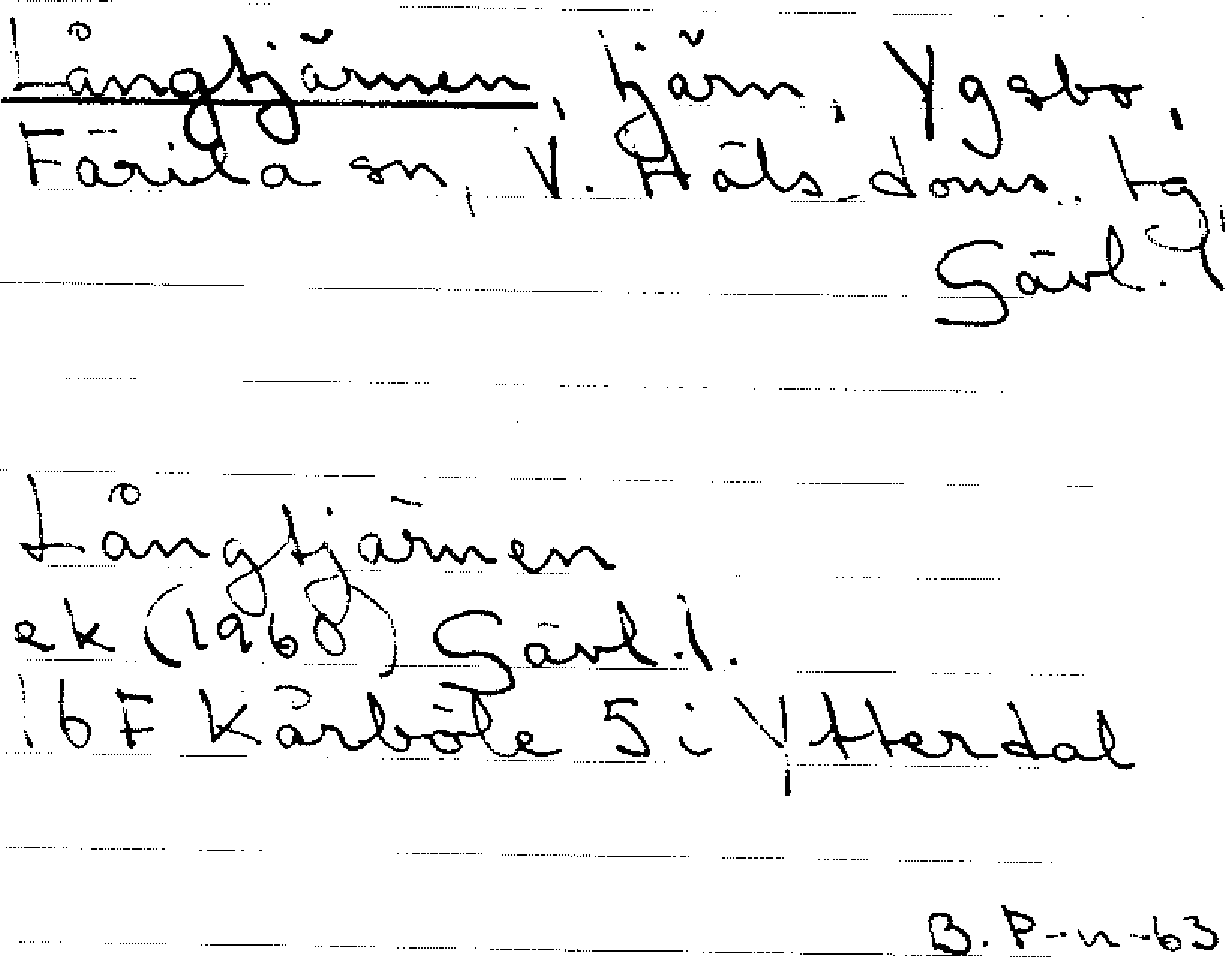 Långtjärnen, tjärn, Ygsbo,
Färila sn, V. Häls. doms. tg,
Gävl. l
Långtjärnen
ek (1960) Gävl. l.
16 F Kårböle 5 i Ytterdal
B. P-n -63